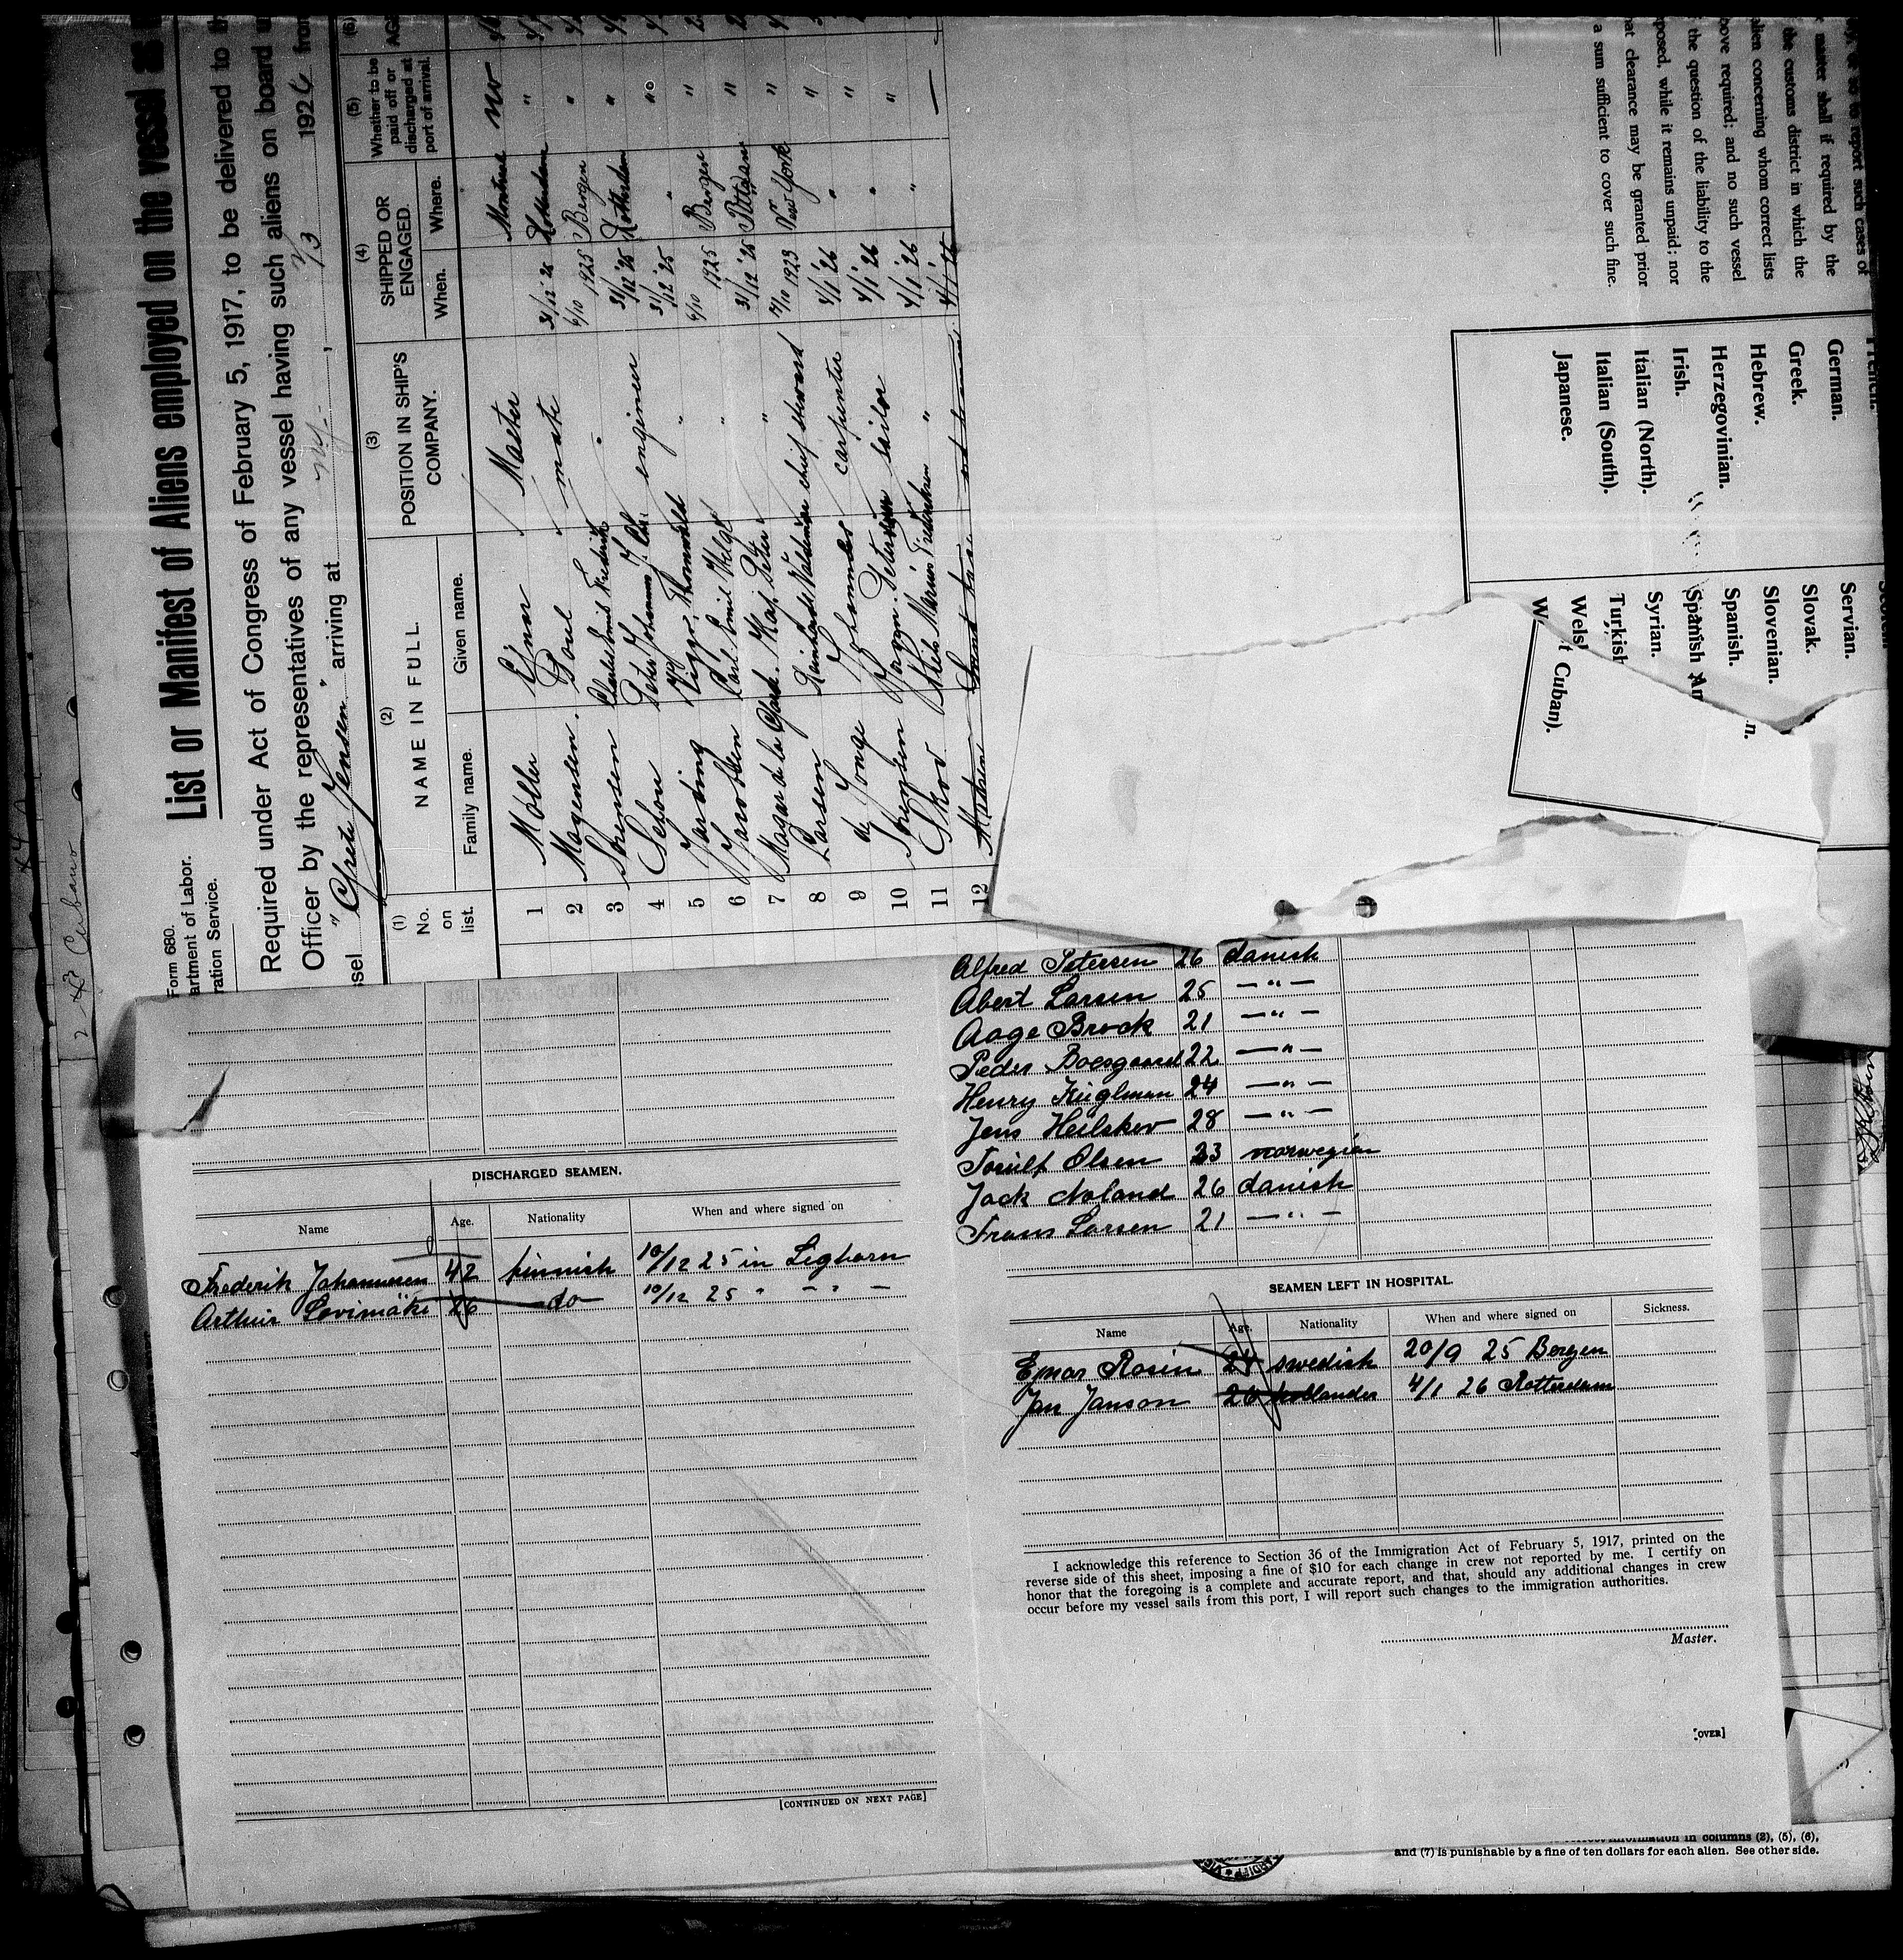 Form 680.
artment of Labor.
ration Service.
List or Manifest of Aliens employed on the vessel as
Required under Act of Congress of February 5, 1917, to be delivered to th
Officer by the representatives of any vessel having such aliens on board u
ssel "Grete Jensen" arriving at N.Y. , 1926 from
(1) No. on list.
(2) NAME IN FULL.
Family name. Given name.
(3) POSITION IN SHIP'S COMPANY.
(4) SHIPPED OR ENGAGED.
When. Where.
(5) Whether to be paid off or discharged at port of arrival.
(6) AG
1 Moller Ejnar Master Montreal no
2 Mogensen Poul mate 31/12 '25 Rotterdam "
3 Sørensen Frederik " 6/10 1925 Bergen "
4 Schou Peter Johannes engineer 31/12 '25 Rotterdam "
5 Viggo Thorvald " 31/12 '25 " "
6 Jacobsen Carl Emil Helge " 6/10 1925 Bergen "
7 Kaj Peter " 31/12 '25 "
8 Larsen Valdemar chief steward 1923 New York "
9 de Jonge Johannes carpenter 4/1 '26 " "
10 Jørgen Petersen sailor 4/1 '26 " "
11 Skov Niels Marius Frederiksen " 4/1 '26 " "
12
to report such cases of
master shall if required by the
the customs district in which the
alien concerning whom correct lists
bove required; and no such vessel
the question of the liability to the
posed, while it remains unpaid; nor
hat clearance may be granted prior
a sum sufficient to cover such fine.
French.
German.
Greek.
Hebrew.
Herzegovinian.
Irish.
Italian (North).
Italian (South).
Japanese.
Servian.
Slovak.
Slovenian.
Spanish.
Spanish Am
Syrian.
Turkish
Wels
W
t Cuban).
n.
2 Cubano
DISCHARGED SEAMEN.
Name Age. Nationality When and where signed on
Frederik Johannesen 42 finnish 10/12 25 in Leghorn
Arthur Lovimäki 26 do 10/12 25 " - " -
[CONTINUED ON NEXT PAGE]
Alfred Petersen 26 danish
Abert Larsen 25 — " —
Aage Brock 21 — " —
Peder Boesgaard 22 — " —
Henry Kuglman 24 — " —
Jens Heilskov 28 — " —
Torulf Olsen 23 norwegian
Jack Noland 26 danish
Frans Larsen 21 — " —
SEAMEN LEFT IN HOSPITAL.
Name Age. Nationality When and where signed on Sickness.
Ejnar Rosin 24 swedish 20/9 25 Bergen
Jan Janson 26 hollander 4/1 26 Rotterdam
I acknowledge this reference to Section 36 of the Immigration Act of February 5, 1917, printed on the
reverse side of this sheet, imposing a fine of $10 for each change in crew not reported by me. I certify on
honor that the foregoing is a complete and accurate report, and that, should any additional changes in crew
occur before my vessel sails from this port, I will report such changes to the immigration authorities.
Master.
[OVER]
information in columns (2), (5), (6),
and (7) is punishable by a fine of ten dollars for each alien. See other side.